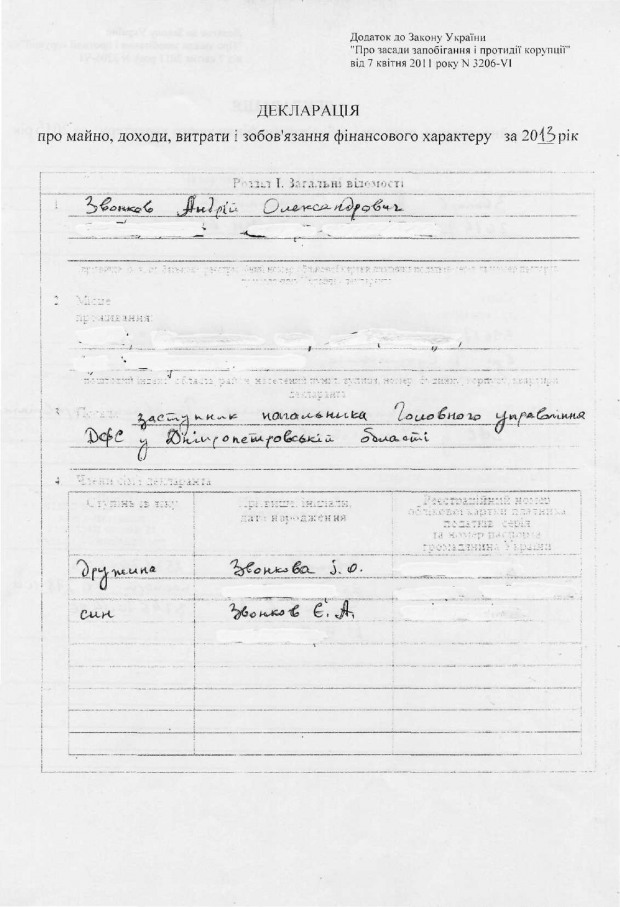 Додаток до Закону України
"Про засади запобігання і протидії корупції"
від 7 квітня 2011 року N 3206-VI
ДЕКЛАРАЦІЯ
про майно, доходи, витрати і зобов'язання фінансового характеру за 2013 рік
Розділ I. Загальні відомості
1. Звонков Андрій Олександрович
2. Місце
проживання:
поштовий індекс, область, район, населений пункт, вулиця, номер будинку, корпусу, квартири
декларанта
3. Посада: заступник начальника Головного управління
ДФС у Дніпропетровській області
4. Члени сім'ї декларанта
Ступінь зв'язку
Прізвище, ініціали,
дата народження
Реєстраційний номер
облікової картки платника
податків, серія
та номер паспорта
громадянина України
дружина
Звонкова І. О.
син
Звонков Є. А.